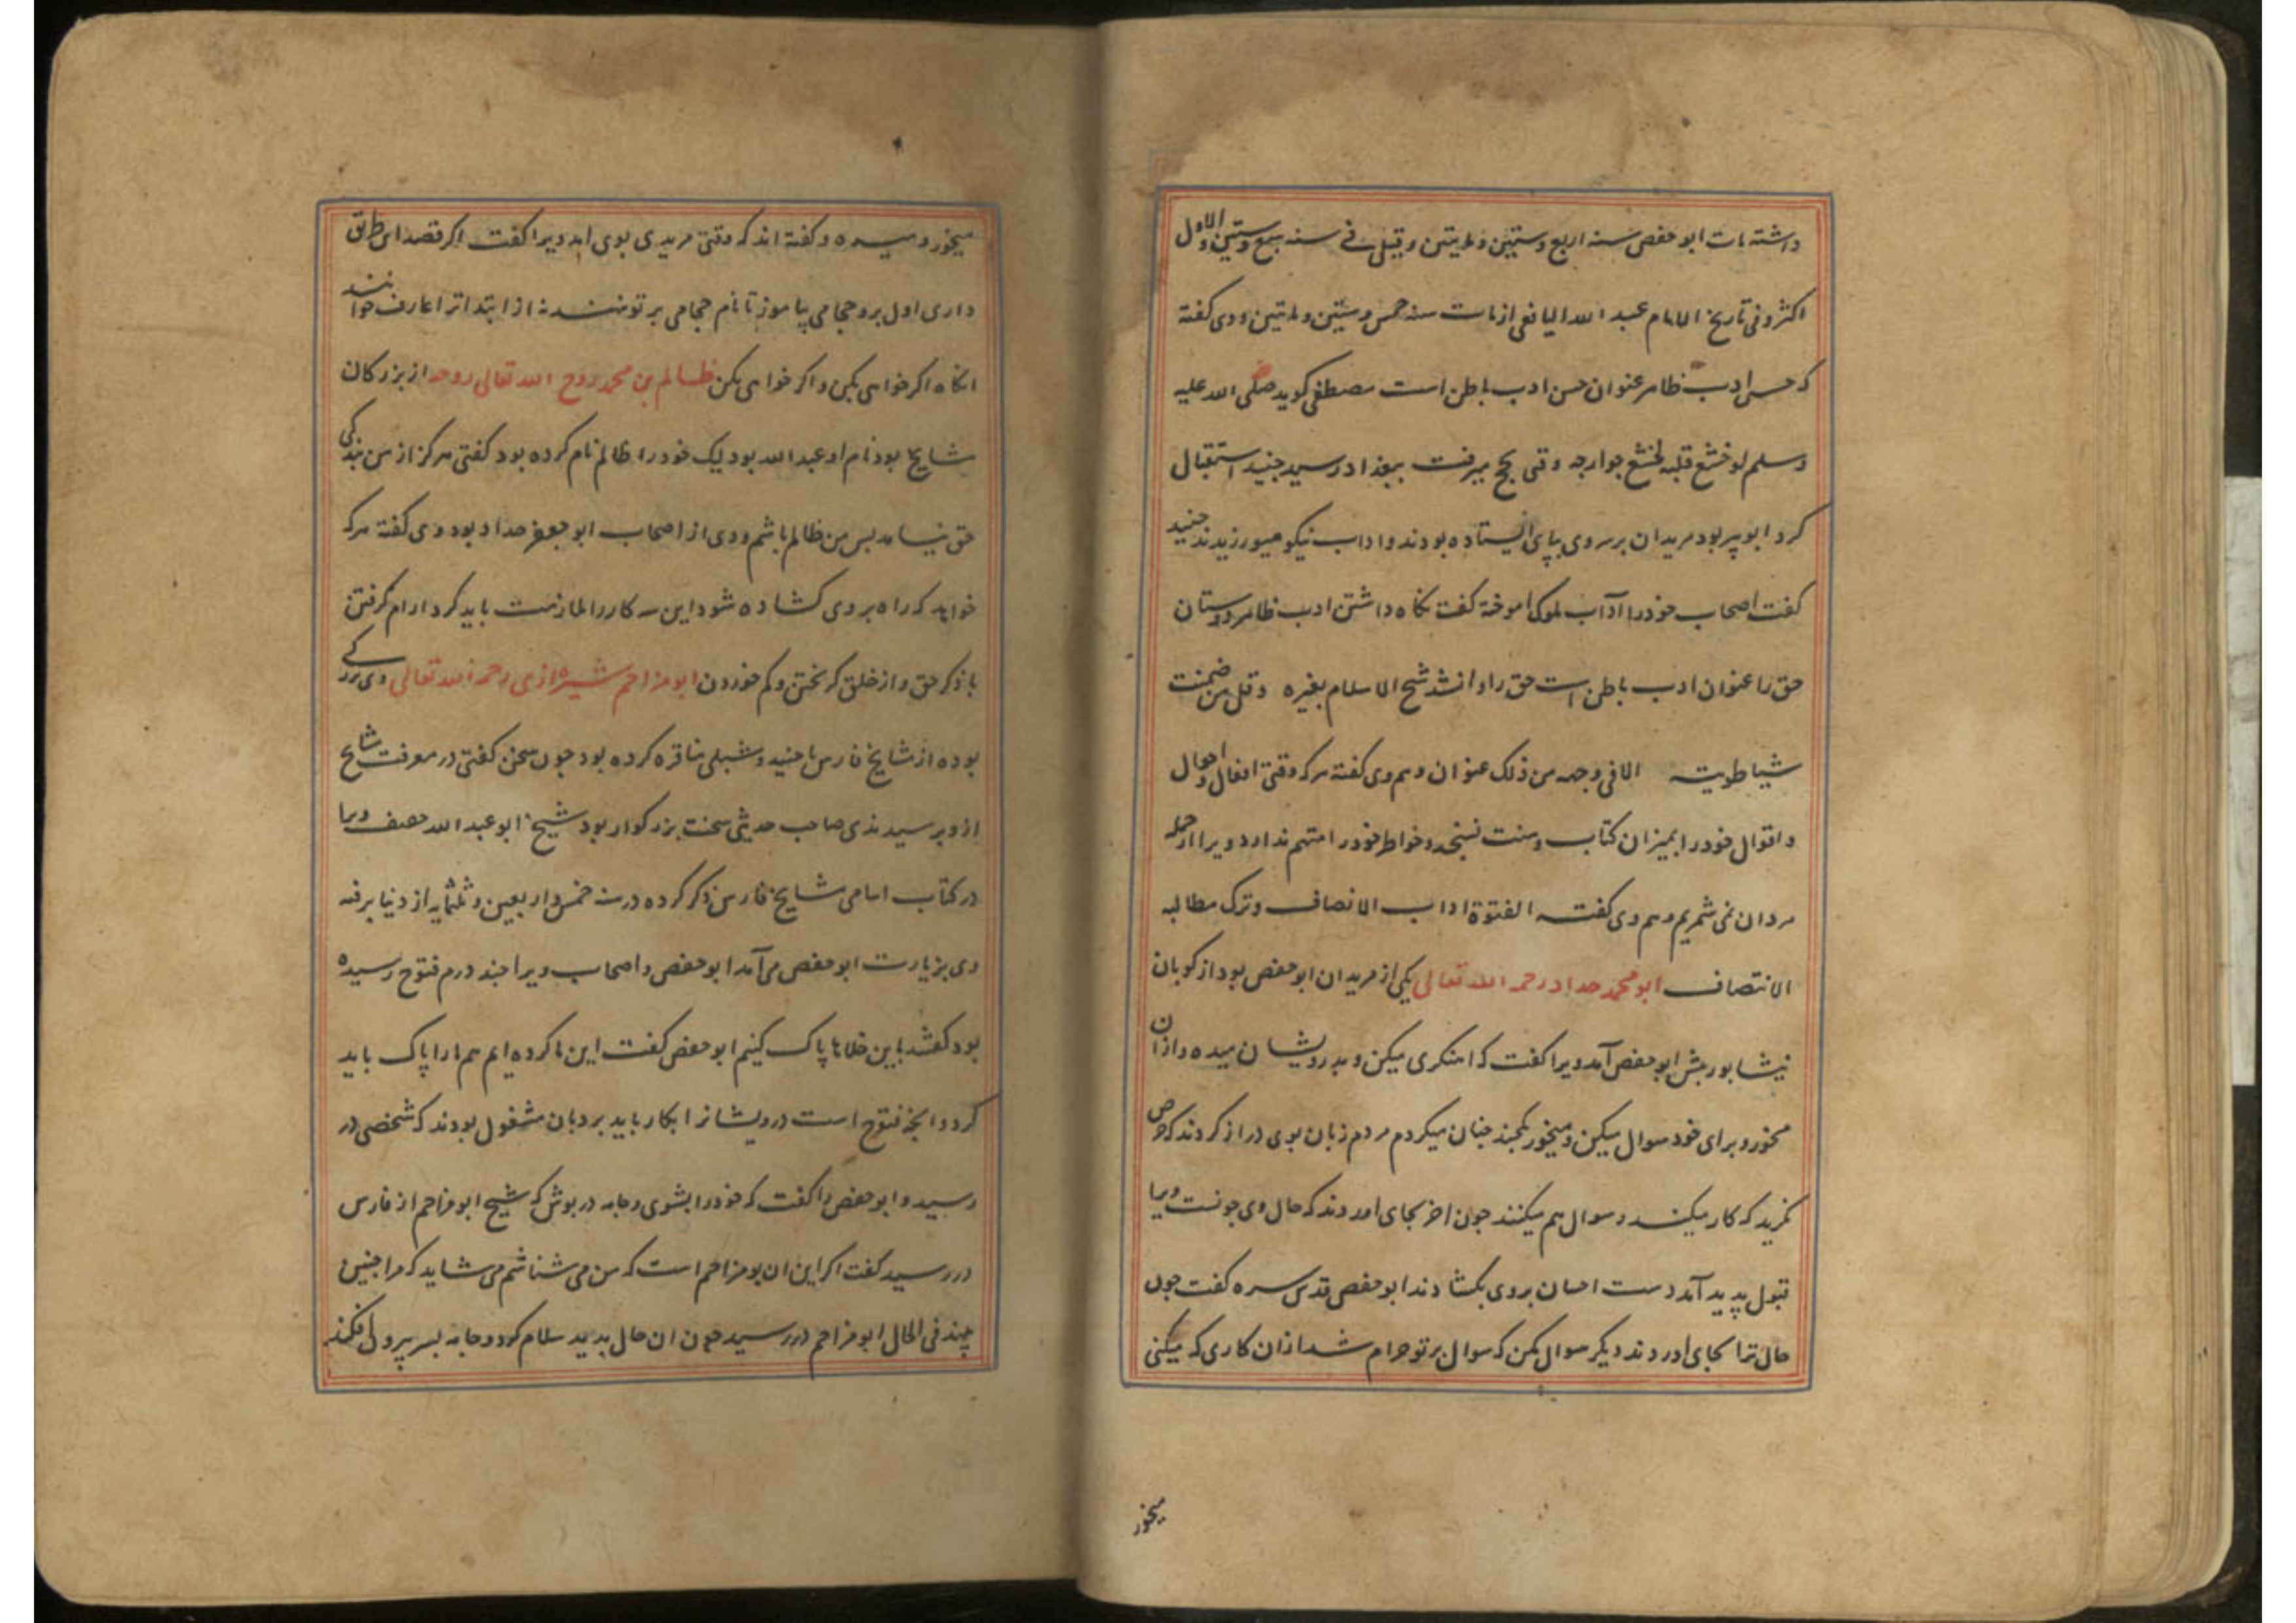 داشته مات ابو حفص سنه اربع و ستین و مایتین و قیل فی سنه سبع و ستین و الاول
اکثر و فی تاریخ الامام عبد الله الیافعی از مات سنه خمس و ستین و مایتین و وی کفته
که حسن ادب ظاهر عنوان حسن ادب باطن است مصطفی کوید صلی الله علیه
و سلم لو خشع قلبه لخشع جوارحه وقتی بحج میرفت ببغداد رسید جنید استقبال
کرد ابو پیر بود مریدان بر سر وی بپای ایستاده بودند و اداب نیکو میورزیدند جنید
کفت اصحاب خود را آداب ملوک اموخته کفت نکاه داشتن ادب ظاهر دوستان
حق را عنوان ادب باطن است حق را و انشد شیخ الاسلام بغیره و قل من ضمنت
شیا طویته الا فی وجهه من ذلک عنوان و هم وی کفته هر که وقتی افعال و احوال
و اقوال خود را بمیزان کتاب و سنت نسنجد و خواطر خود را متهم ندارد ویرا از جمله
مردان نمی شمریم و هم وی کفت الفتوة اداب الانصاف و ترک مطالبه
الانتصاف ابو محمد حداد رحمه الله تعالی یکی از مریدان ابو حفص بود از کوبان
نیشابور پیش ابو حفص آمد ویرا کفت که اهنکری میکن و بدرویشان میده و از ان
مخور و برای خود سوال میکن و میخور یکچند چنان میکردم مردم زبان بوی دراز کردند که حرص
نکرید که کار میکند و سوال هم میکنند چون اخر بجای اوردند که حال وی چونست ویرا
قبول پدید آمد دست احسان بر وی بکشادند ابو حفص قدس سره کفت چون
حال ترا بجای اوردند دیکر سوال مکن که سوال بر تو حرام شد از ان کاری که میکنی
میخور
میخور و میده و کفته اند که وقتی مریدی بوی امد ویرا کفت اکر قصد این طریق
داری اول برو حجامی بیاموز تا نام حجامی بر تو نهند نه از ابتدا ترا عارف خوانند
انکاه اکر خواهی بکن و اکر خواهی مکن ظالم بن محمد روح الله تعالی روحه از بزرکان
مشایخ بود نام او عبد الله بود لیک خود را ظالم نام کرده بود کفتی هرکز از من بندکی
حق نیامد پس من ظالم باشم و وی از اصحاب ابو جعفر حداد بود وی کفته هر که
خواهد که راه بر وی کشاده شود این سه کار را ملازمت باید کرد ارام کرفتن
با ذکر حق و از خلق کریختن و کم خوردن ابو مزاحم شیرازی رحمه الله تعالی وی بزرکی
بوده از مشایخ فارس با جنید و شبلی مناقره کرده بود چون سخن کفتی در معرفت مشایخ
ازو پرسیدندی صاحب حدیثی سخت بزرکوار بود شیخ ابو عبد الله خفیف ویرا
در کتاب اسامی مشایخ فارس ذکر کرده در سنه خمس و اربعین و ثلثمایه از دنیا برفته
وی بزیارت ابو حفص می آمد ابو حفص و اصحاب ویرا چند درم فتوح رسیده
بود کفتند باین خلاها پاک کنیم ابو حفص کفت این ما کرده ایم هم ما را پاک باید
کرد و انچه فتوح است درویشانرا بکار باید برد بان مشغول بودند که شخصی در
رسید و ابو حفص را کفت که خود را بشوی و جامه در پوش که شیخ ابو مزاحم از فارس
در رسید کفت اکر این ان بو مزاحم است که من می شناسم می شاید که مرا چنین
بیند فی الحال ابو مزاحم در رسید چون ان حال بدید سلام کرد و جامه بسر بیرون افکند